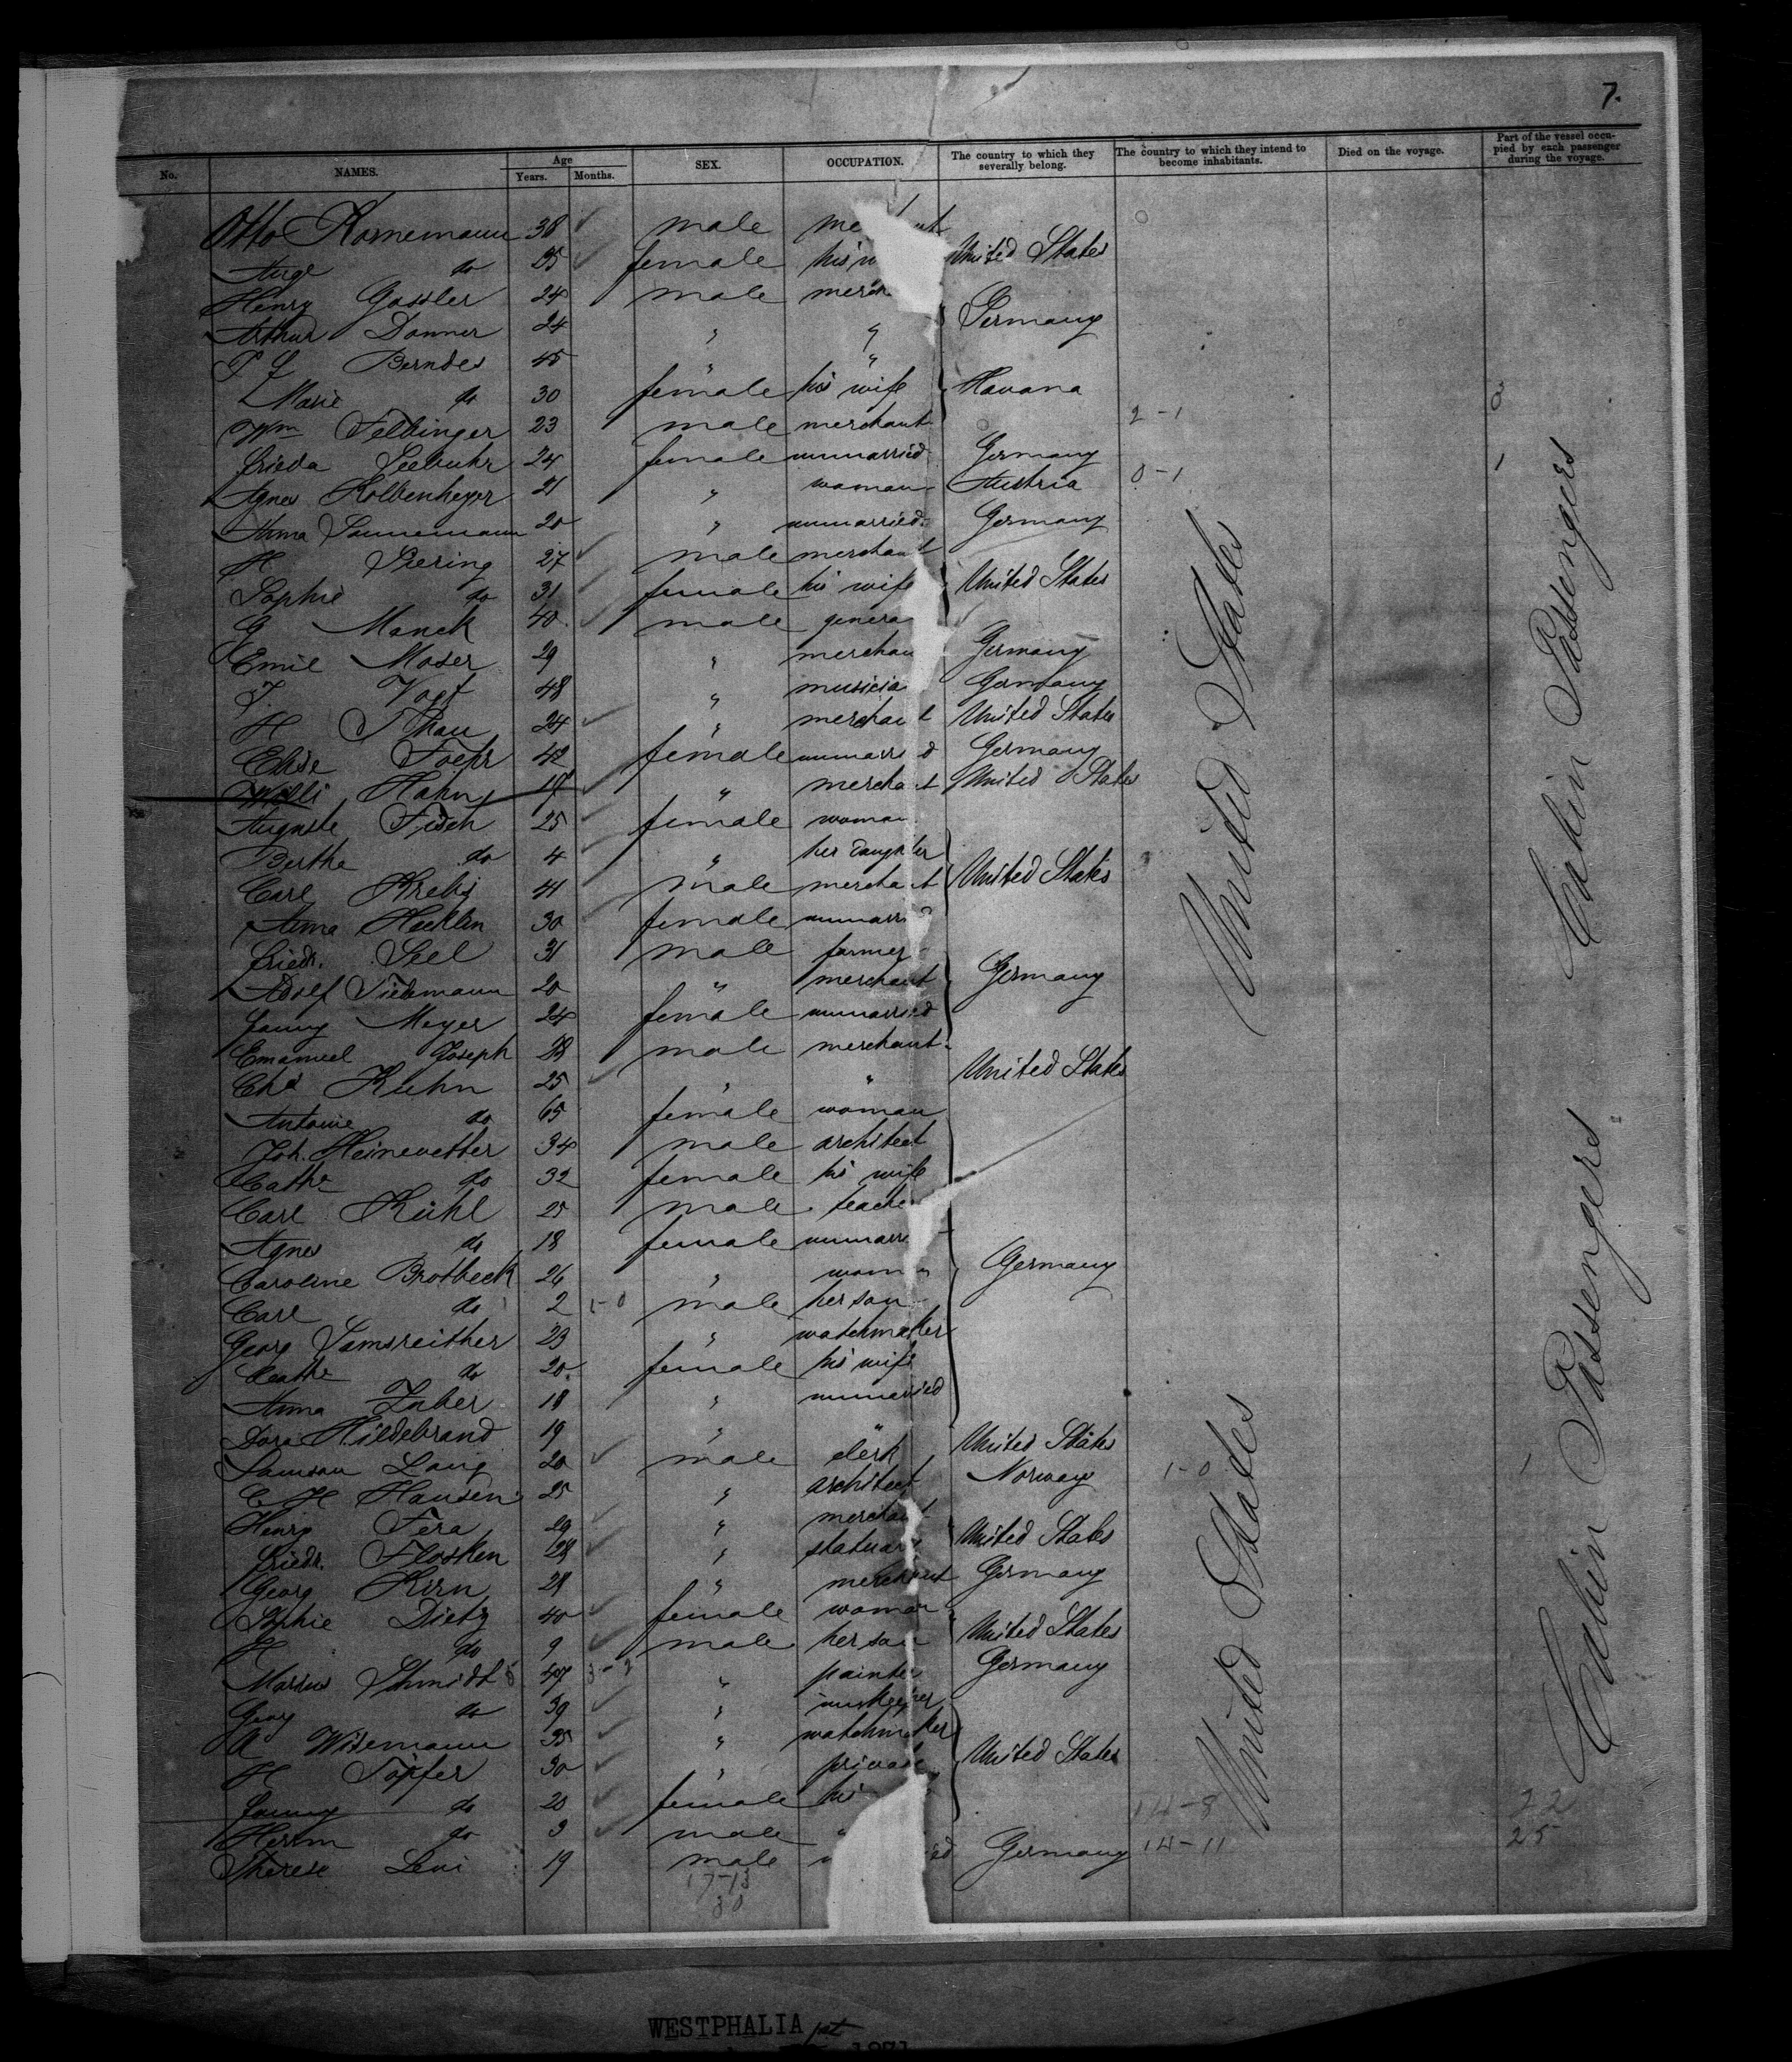 7.
No. NAMES. Age Years. Months. SEX. OCCUPATION. The country to which they severally belong. The country to which they intend to become inhabitants. Died on the voyage. Part of the vessel occupied by each passenger during the voyage.
Otto Kornemann 38 male
do 25 female his United States
Henry Gossler 24 male merch
Arthur Donner 24 " " Germany
Berndes 45 " "
Marie do 30 female his wife Havana
Wm Felbinger 23 male merchant 2-1 3
Frieda Seebuhr 24 female unmarried Germany 1
Agnes Kolbenheyer 21 " woman Austria 0-1
Anna Sannemann 20 " unmarried Germany
H Siering 27 male merchant
Sophie do 31 female his wife United States
G Manek 40 male genera
Emil Moser 29 " merchan Germany
J. Vogt 48 " musicia Germany
H Thau 24 " merchant United States
Elise Foehr 42 female unmarr d Germany
Willi Hahn 19 " merchant United States
Auguste Fisch 25 female woman
Bertha do 4 " her daughter
Carl Krebs 41 male merchant United States
Anna Hecklin 30 female unmarr
Friedr. Seel 31 male farmer
Adolf Tiedemann 20 " merchant Germany
Fanny Meyer 24 female unmarried
Emanuel Joseph male merchant
Chs Kuhn 25 " " United States
Antonie do 65 female woman
Joh. Heinevetter 34 male architect
Cathe do 32 female his wife
Carl Kühl 25 male teache
Agnes do 18 female unmarr
Caroline Brotbeck 26 " woman Germany
Carl do 2 1-0 male her son
Georg Samsreither 23 " watchmaker
Cathe do 20 female his wife
Anna Faber 18 " unmarried
Dora Hildebrand 19 " "
Samson Lang 20 male clerk United States
C H Hansen 25 " architect Norway 1-0 1
Henry Fera 29 " merchant
Friedr. Flosken 28 " statuary United States
Georg Kirn 29 " merchant Germany
Sophie Dietz 40 female woman
H do 9 male her son United States
Marcus Schmidt 47 3-3 " painter Germany
Georg do 39 " innkeeper
A Widemann 35 " watchmaker
H Töpfer 30 " private United States
Fanny do 20 female his 14-8 22
Herrm do 3 male " 14-11 25
Therese Levi 19 male ed Germany
17-13
30
United States
United States
Cabin Passengers
Cabin Passengers
WESTPHALIA
1871